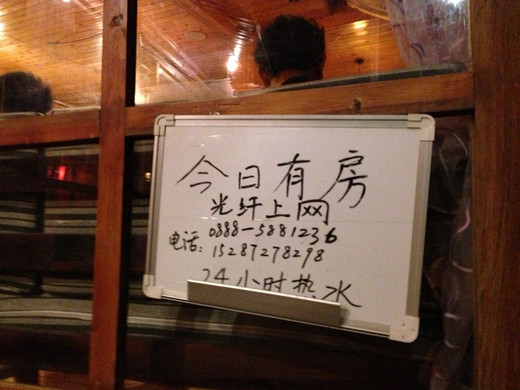 今日有房
光纤上网
电话: 0888-5881236
15287278298
24小时热水